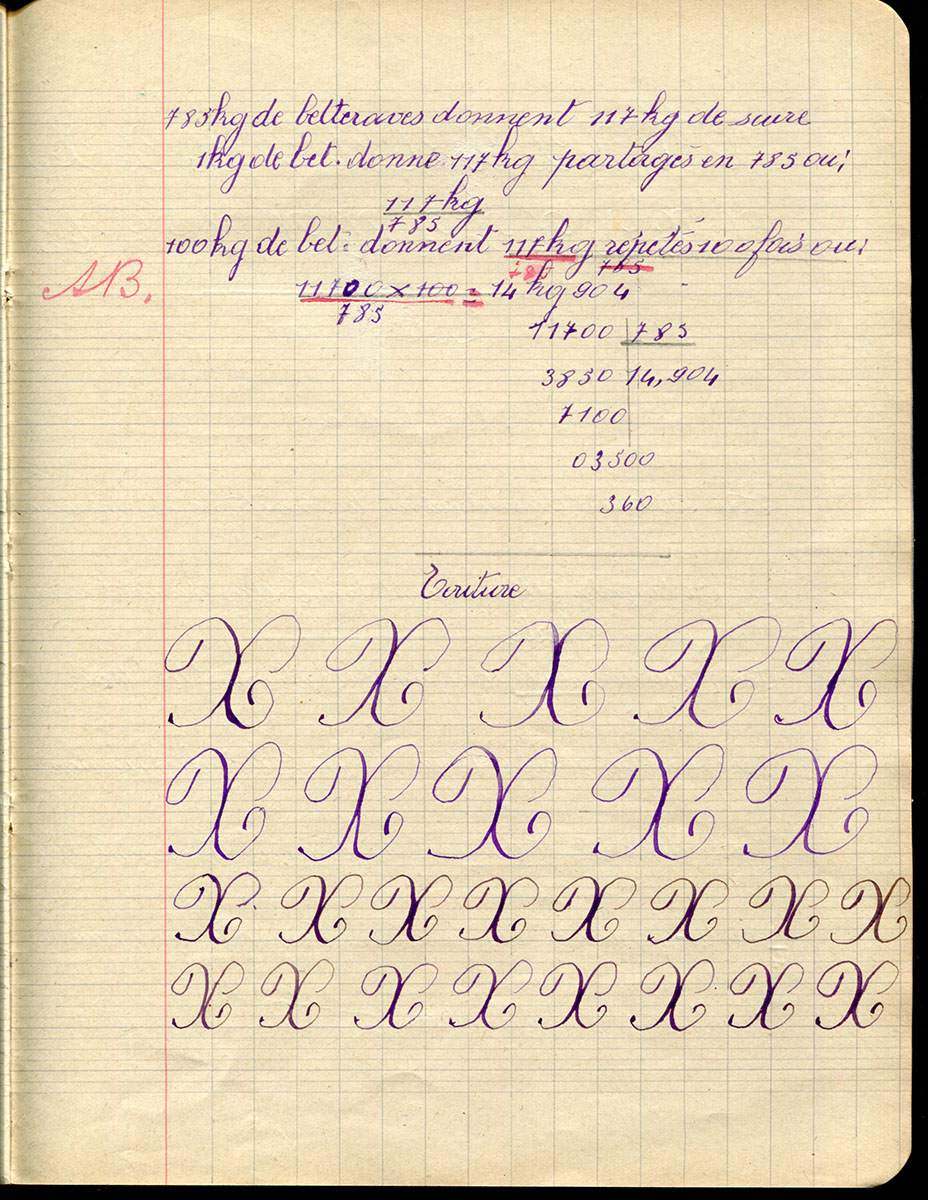 785kg de betteraves donnent 117kg de sucre
1kg de bet. donne 117kg partagés en 785 ou;
117kg
785
100kg de bet. donnent 117kg répétés 100 fois ou;
785 785
AB.
11700 x 100 = 14kg904
785
11700 785
3850 14,904
7100
03500
360
Ecriture
X X X X X
X X X X X
X X X X X X X X
X X X X X X X X